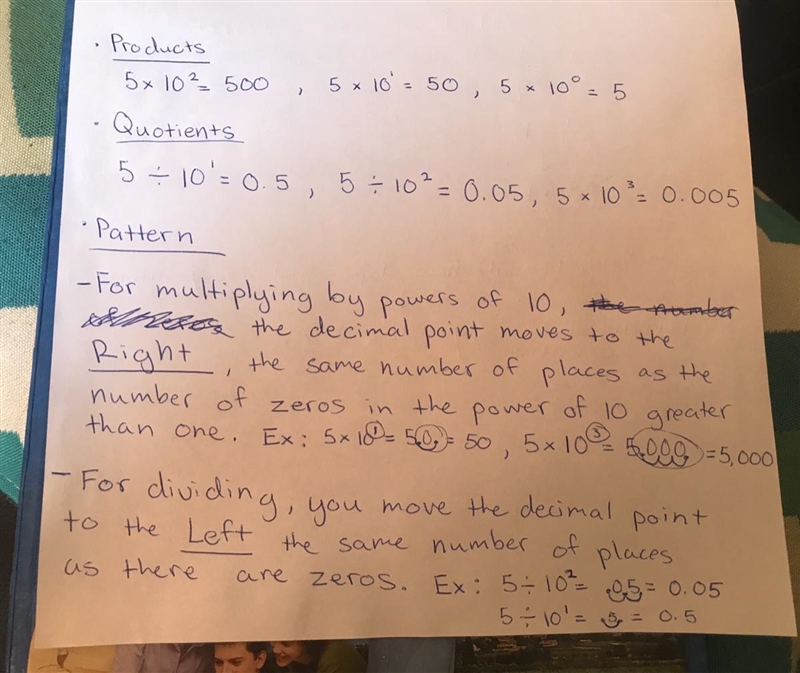 · Products
5 × 10² = 500 , 5 × 10¹ = 50 , 5 × 10⁰ = 5
· Quotients
5 ÷ 10¹ = 0.5 , 5 ÷ 10² = 0.05 , 5 × 10³ = 0.005
· Pattern
- For multiplying by powers of 10, the number
the decimal point moves to the
Right , the same number of places as the
number of zeros in the power of 10 greater
than one. Ex : 5 × 10¹ = 50. = 50 , 5 × 10³ = 5,000 = 5,000
- For dividing, you move the decimal point
to the Left the same number of places
as there are zeros. Ex : 5 ÷ 10² = .05 = 0.05
5 ÷ 10¹ = .5 = 0.5